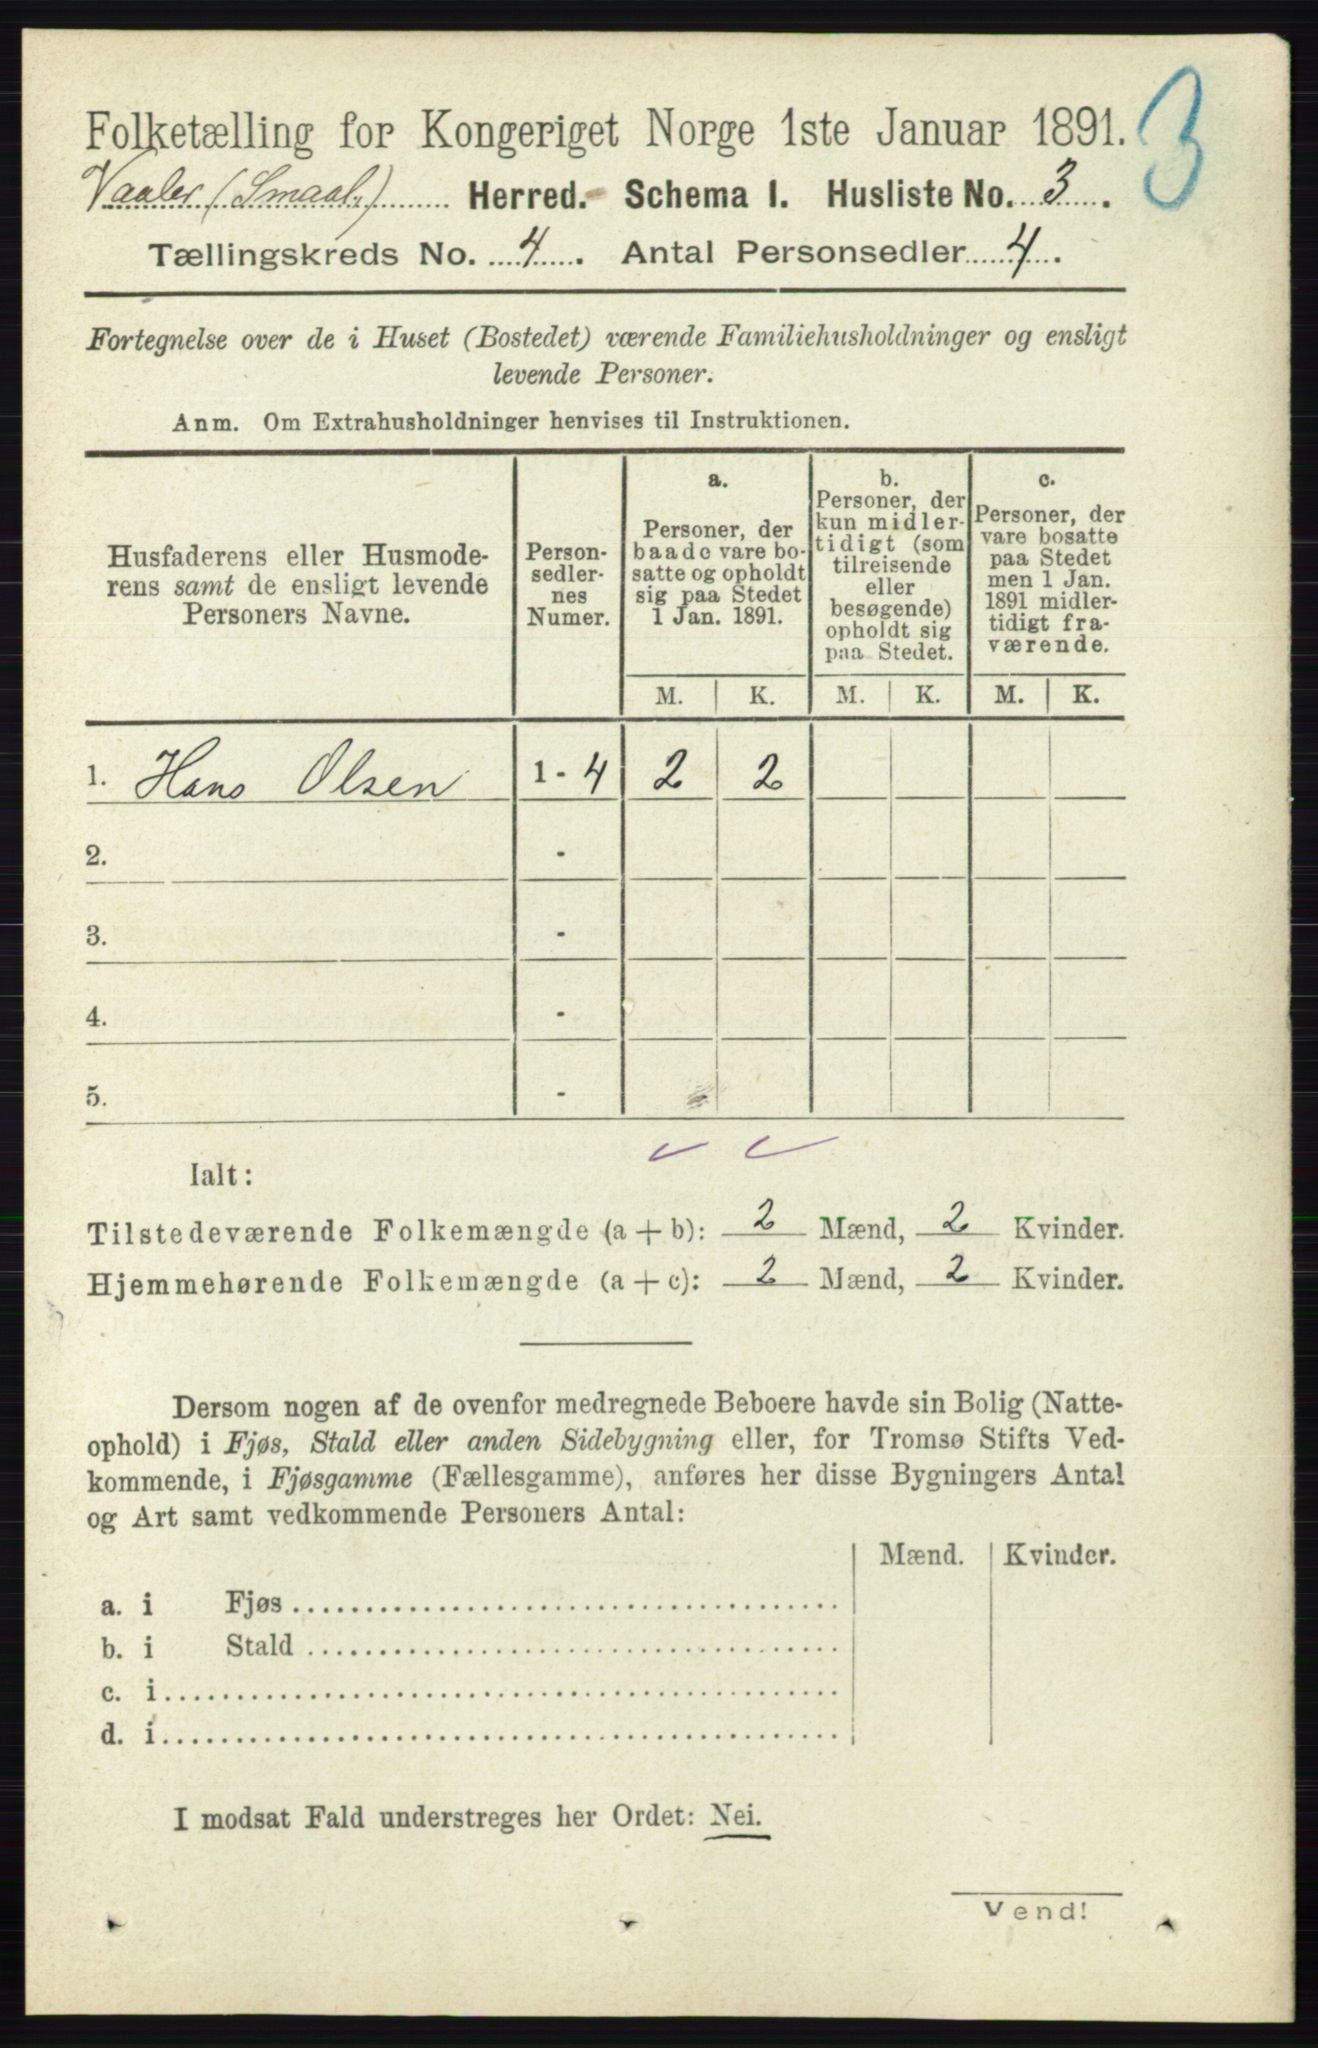 3
Folketælling for Kongeriget Norge 1ste Januar 1891.
Vaaler (Smaal.) Herred. Schema I. Husliste No. 3.
Tællingskreds No. 4. Antal Personsedler 4.
Fortegnelse over de i Huset (Bostedet) værende Familiehusholdninger og ensligt
levende Personer.
Anm. Om Extrahusholdninger henvises til Instruktionen.
Husfaderens eller Husmode-
rens samt de ensligt levende
Personers Navne.
Person-
sedler-
nes
Numer.
a.
Personer, der
baade vare bo-
satte og opholdt
sig paa Stedet
1 Jan. 1891.
b.
Personer, der
kun midler-
tidigt (som
tilreisende
eller
besøgende)
opholdt sig
paa Stedet.
c.
Personer, der
vare bosatte
paa Stedet
men 1 Jan.
1891 midler-
tidigt fra-
værende.
M. K. M. K. M. K.
1. Hans Olsen 1 - 4 2 2
2. -
3. -
4. -
5. -
Ialt:
Tilstedeværende Folkemængde (a + b): 2 Mænd, 2 Kvinder.
Hjemmehørende Folkemængde (a + c): 2 Mænd, 2 Kvinder.
Dersom nogen af de ovenfor medregnede Beboere havde sin Bolig (Natte-
ophold) i Fjøs, Stald eller anden Sidebygning eller, for Tromsø Stifts Ved-
kommende, i Fjøsgamme (Fællesgamme), anføres her disse Bygningers Antal
og Art samt vedkommende Personers Antal:
Mænd. Kvinder.
a. i Fjøs
b. i Stald
c. i
d. i
I modsat Fald understreges her Ordet: Nei.
Vend!